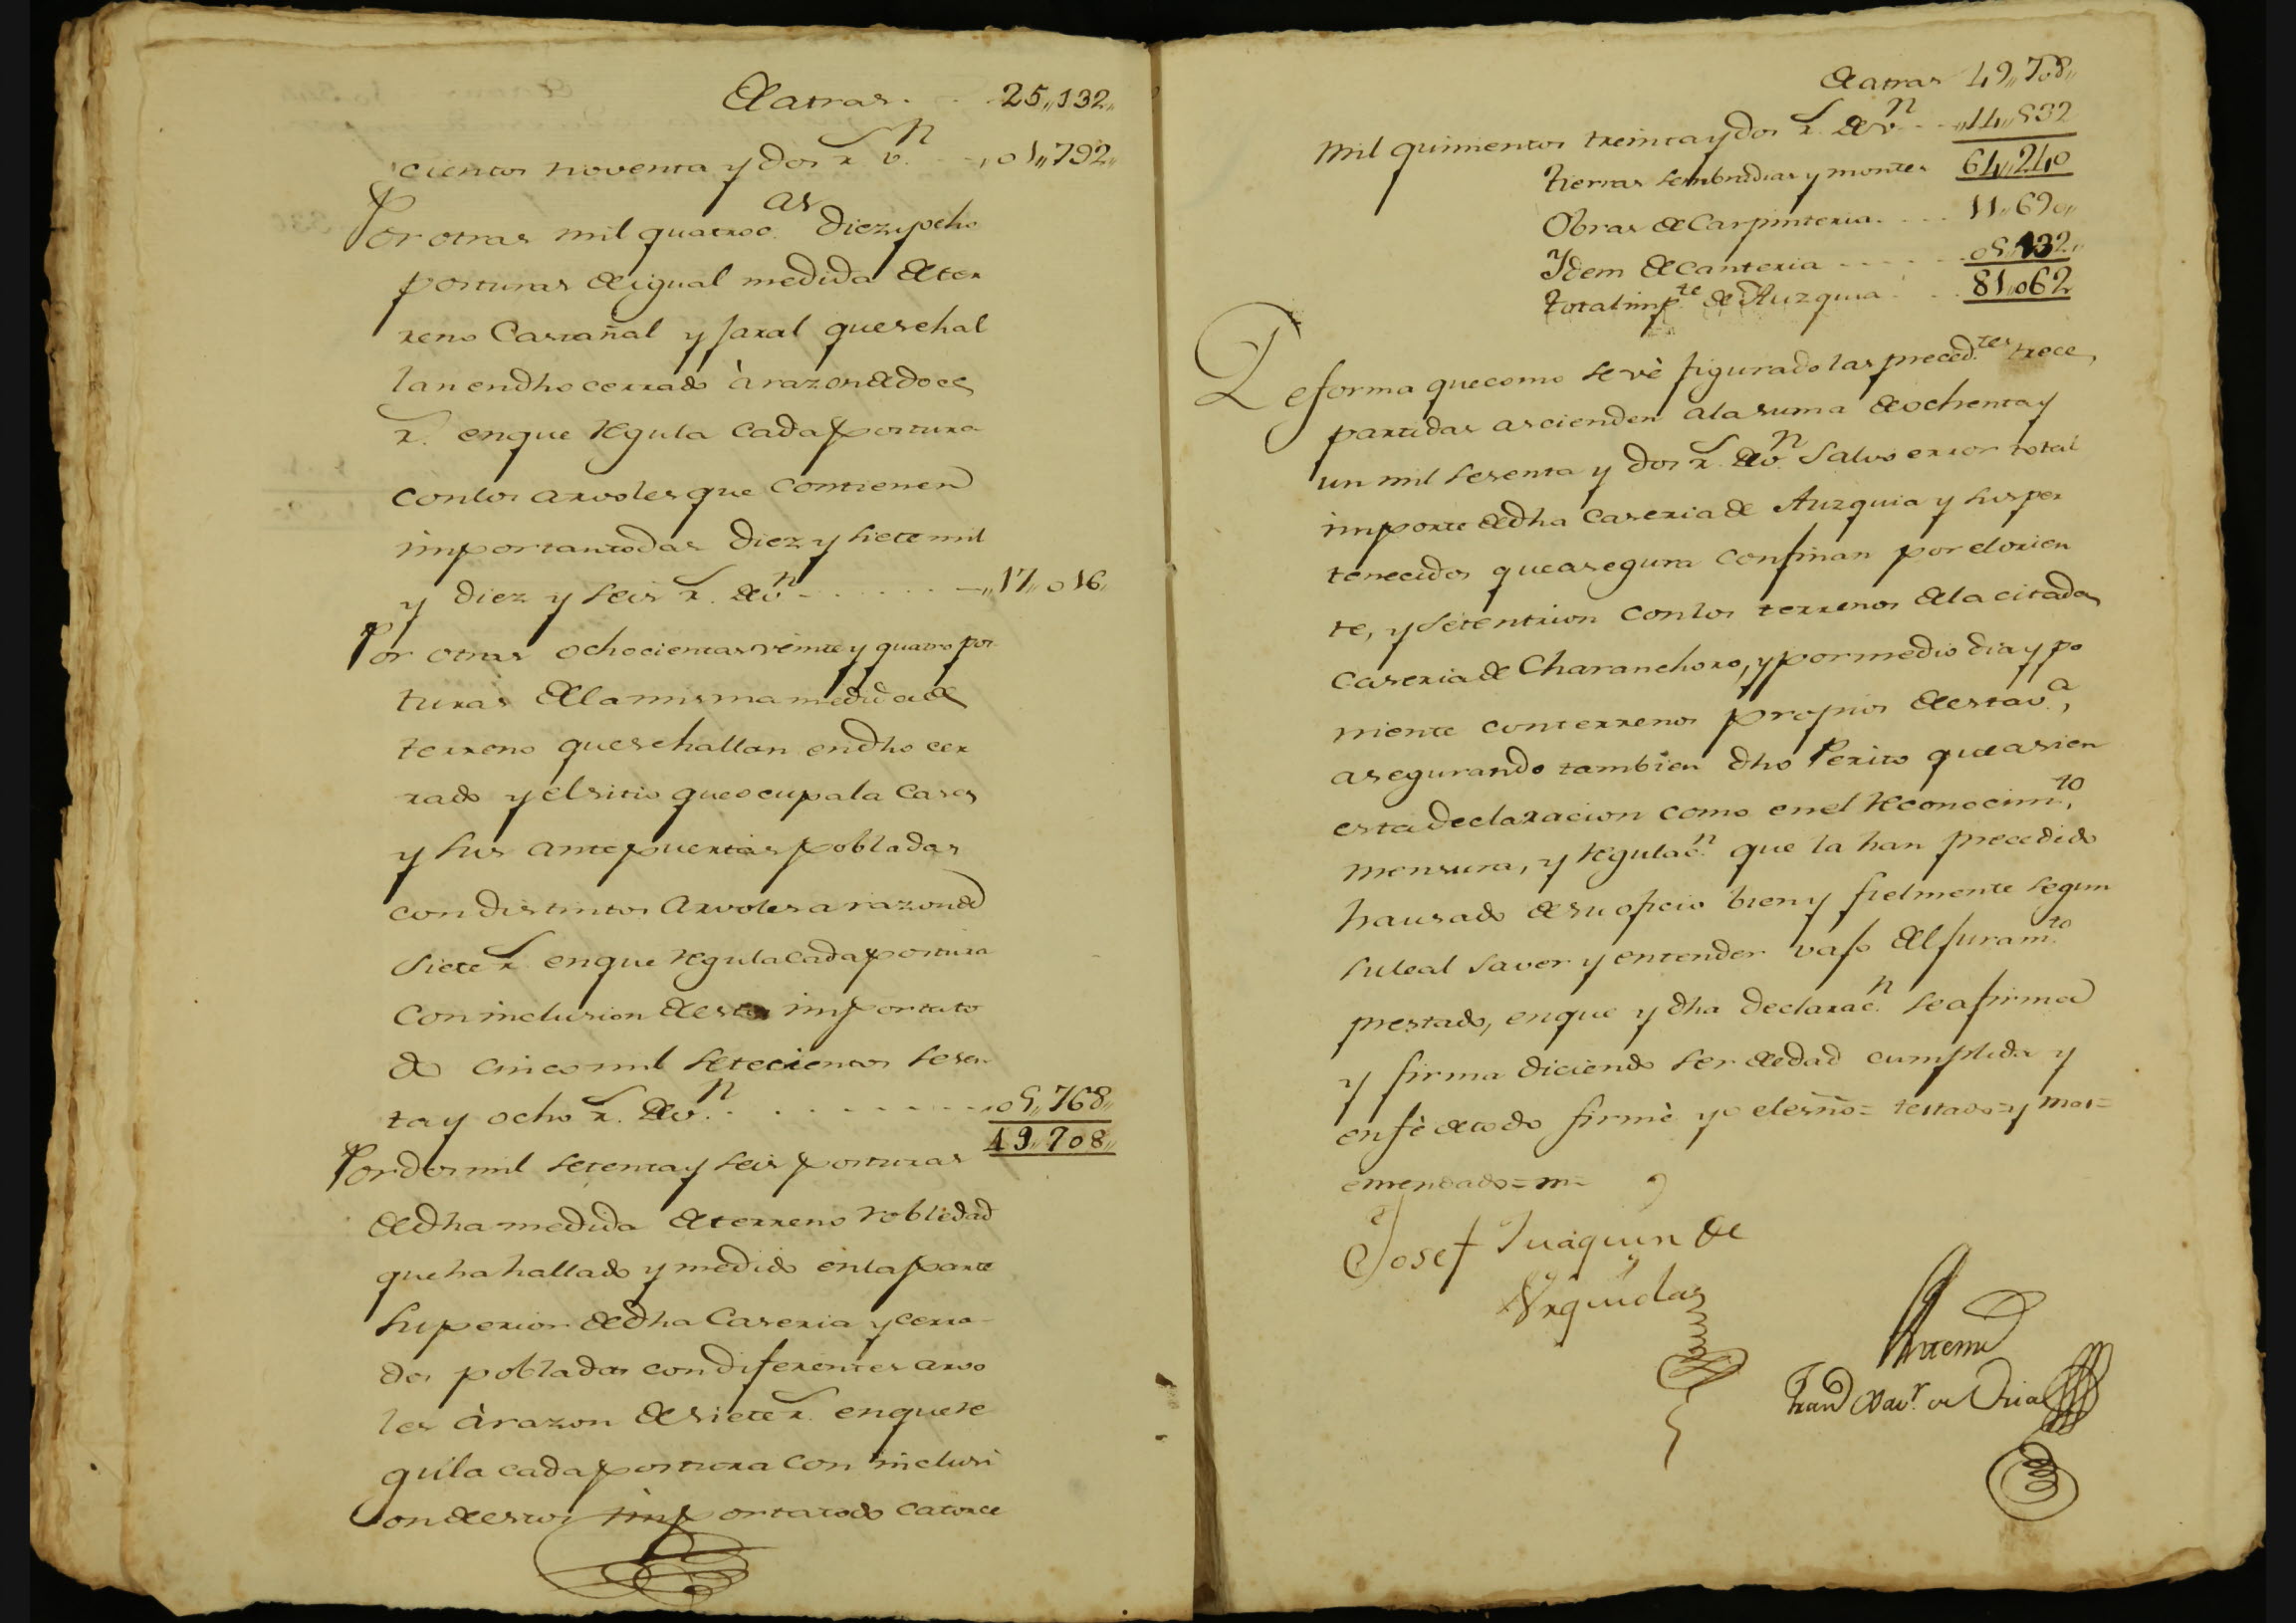 De atras . . 25,,132,,
cientos noventa y dos rs vn. - ,,01,,792,,
Por otras mil quatroc.as diez y ocho
posturas de igual medida de ter
reno Castañal y Jaral que se hal
lan en dho cerrado à razon de doce
rs. en que regula cada postura
con los arvoles que contienen
importan todas diez y siete mil
y diez y seis rs. de vn - . . . . . . - ,,17,,016,,
Por otras ochocientas veinte y quatro pos
turas de la misma medida de
terreno que se hallan en dho cer
rado y el sitio que ocupa la Casa
y sus antepuertas pobladas
con distintos Arvoles a razon de
siete rs en que regula cada postura
con inclusion de estos importa to
do cinco mil setecientos sesen
ta y ocho rs. de vn. . . . . . . . ,,05,,768,,
49,,708,,
Por dos mil setenta y seis posturas
de dha medida de terreno robledad
que ha hallado y medido en la parte
superior de dha Caseria y cerra
do, poblados con diferentes arvo
les à razon de siete rs. en que re
gula cada postura con inclusi
on de estos importa todo catorce
De atras 49,,708,,
mil quinientos treinta y dos rs. de vn - - ,,14,,532
tierras sembradias y montes 64,,240
Obras de Carpinteria. . . . 11,,690,,
Idem de canteria - - - - . 05,,132,,
total imp.te de Auzquia . . . 81,,062
De forma que como se vè figurado las preced.tes trece,
partidas ascienden a la suma de ochenta y
un mil sesenta y dos rs. de vn. salvo error total
importe de dha caseria de Auzquia y sus per
tenecidos que asegura confinan por el orien
te, y setentrion con los terrenos de la citada
caseria de Charanchoro, y por medio dia y po
niente con terrenos propios de esta v.a,
asegurando tambien dho Perito que asi en
esta declaracion como en el reconocim.to,
mensura, y regulac.n que la han precedido
ha usado de su oficio bien y fielmente segun
su leal saver y entender vajo del juram.to
prestado, en que y dha declarac.n se afirma
y firma diciendo ser de edad cumplida y
en fè de todo firmè yo el esno = testado = y mos =
emendado = m =
Josef Juaquin de
Urquidas
Antemi
Fran.co Xav.r de Oria